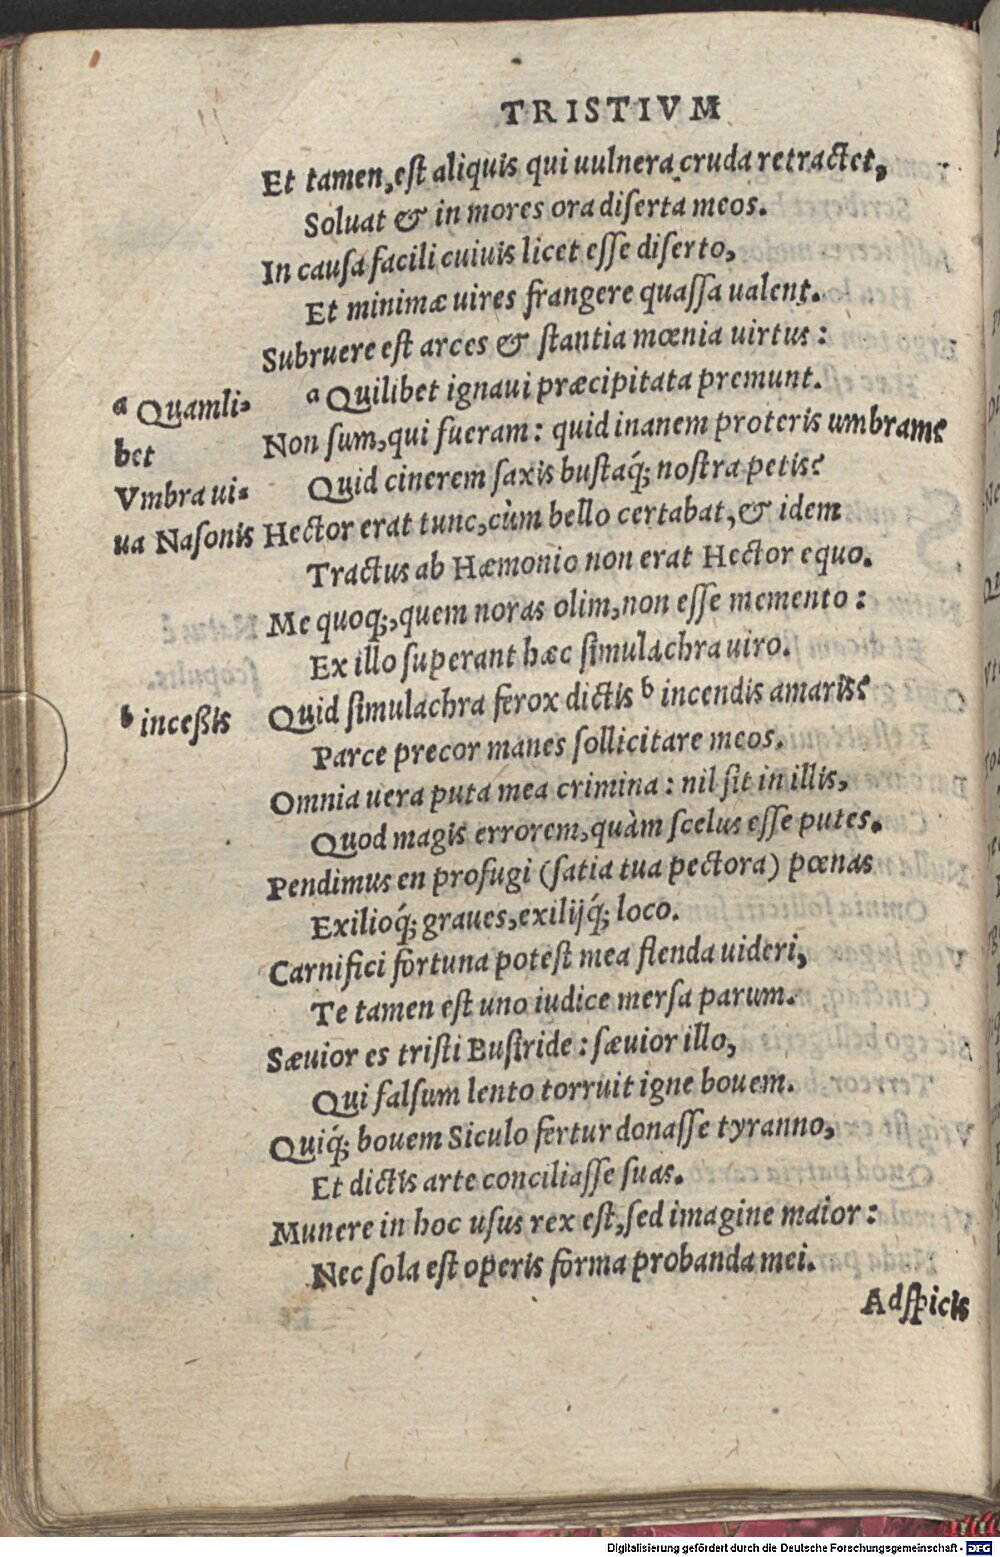 TRISTIVM
Et tamen, est aliquis qui uulnera cruda retractet,
Soluat & in mores ora diserta meos.
In causa facili cuiuis licet esse diserto,
Et minimæ uires frangere quassa ualent.
Subruere est arces & stantia mœnia uirtus:
ᵃ Quilibet ignaui præcipitata premunt.
ᵃ Quamli-
bet
Non sum, qui fueram: quid inanem proteris umbram?
Quid cinerem saxis bustaq́; nostra petis?
Vmbra ui-
ua Nasonis
Hector erat tunc, cùm bello certabat, & idem
Tractus ab Hæmonio non erat Hector equo.
Me quoq;, quem noras olim, non esse memento:
Ex illo superant hæc simulachra uiro.
Quid simulachra ferox dictis ᵇ incendis amaris?
ᵇ inceßis
Parce precor manes sollicitare meos.
Omnia uera puta mea crimina: nil sit in illis,
Quod magis errorem, quàm scelus esse putes.
Pendimus en profugi (satia tua pectora) pœnas
Exilioq́; graues, exilijq́; loco.
Carnifici fortuna potest mea flenda uideri,
Te tamen est uno iudice mersa parum.
Sæuior es tristi Busiride: sæuior illo,
Qui falsum lento torruit igne bouem.
Quiq́; bouem Siculo fertur donasse tyranno,
Et dictis arte conciliasse suas.
Munere in hoc usus rex est, sed imagine maior:
Nec sola est operis forma probanda mei.
Adspicis
Digitalisierung gefördert durch die Deutsche Forschungsgemeinschaft - DFG